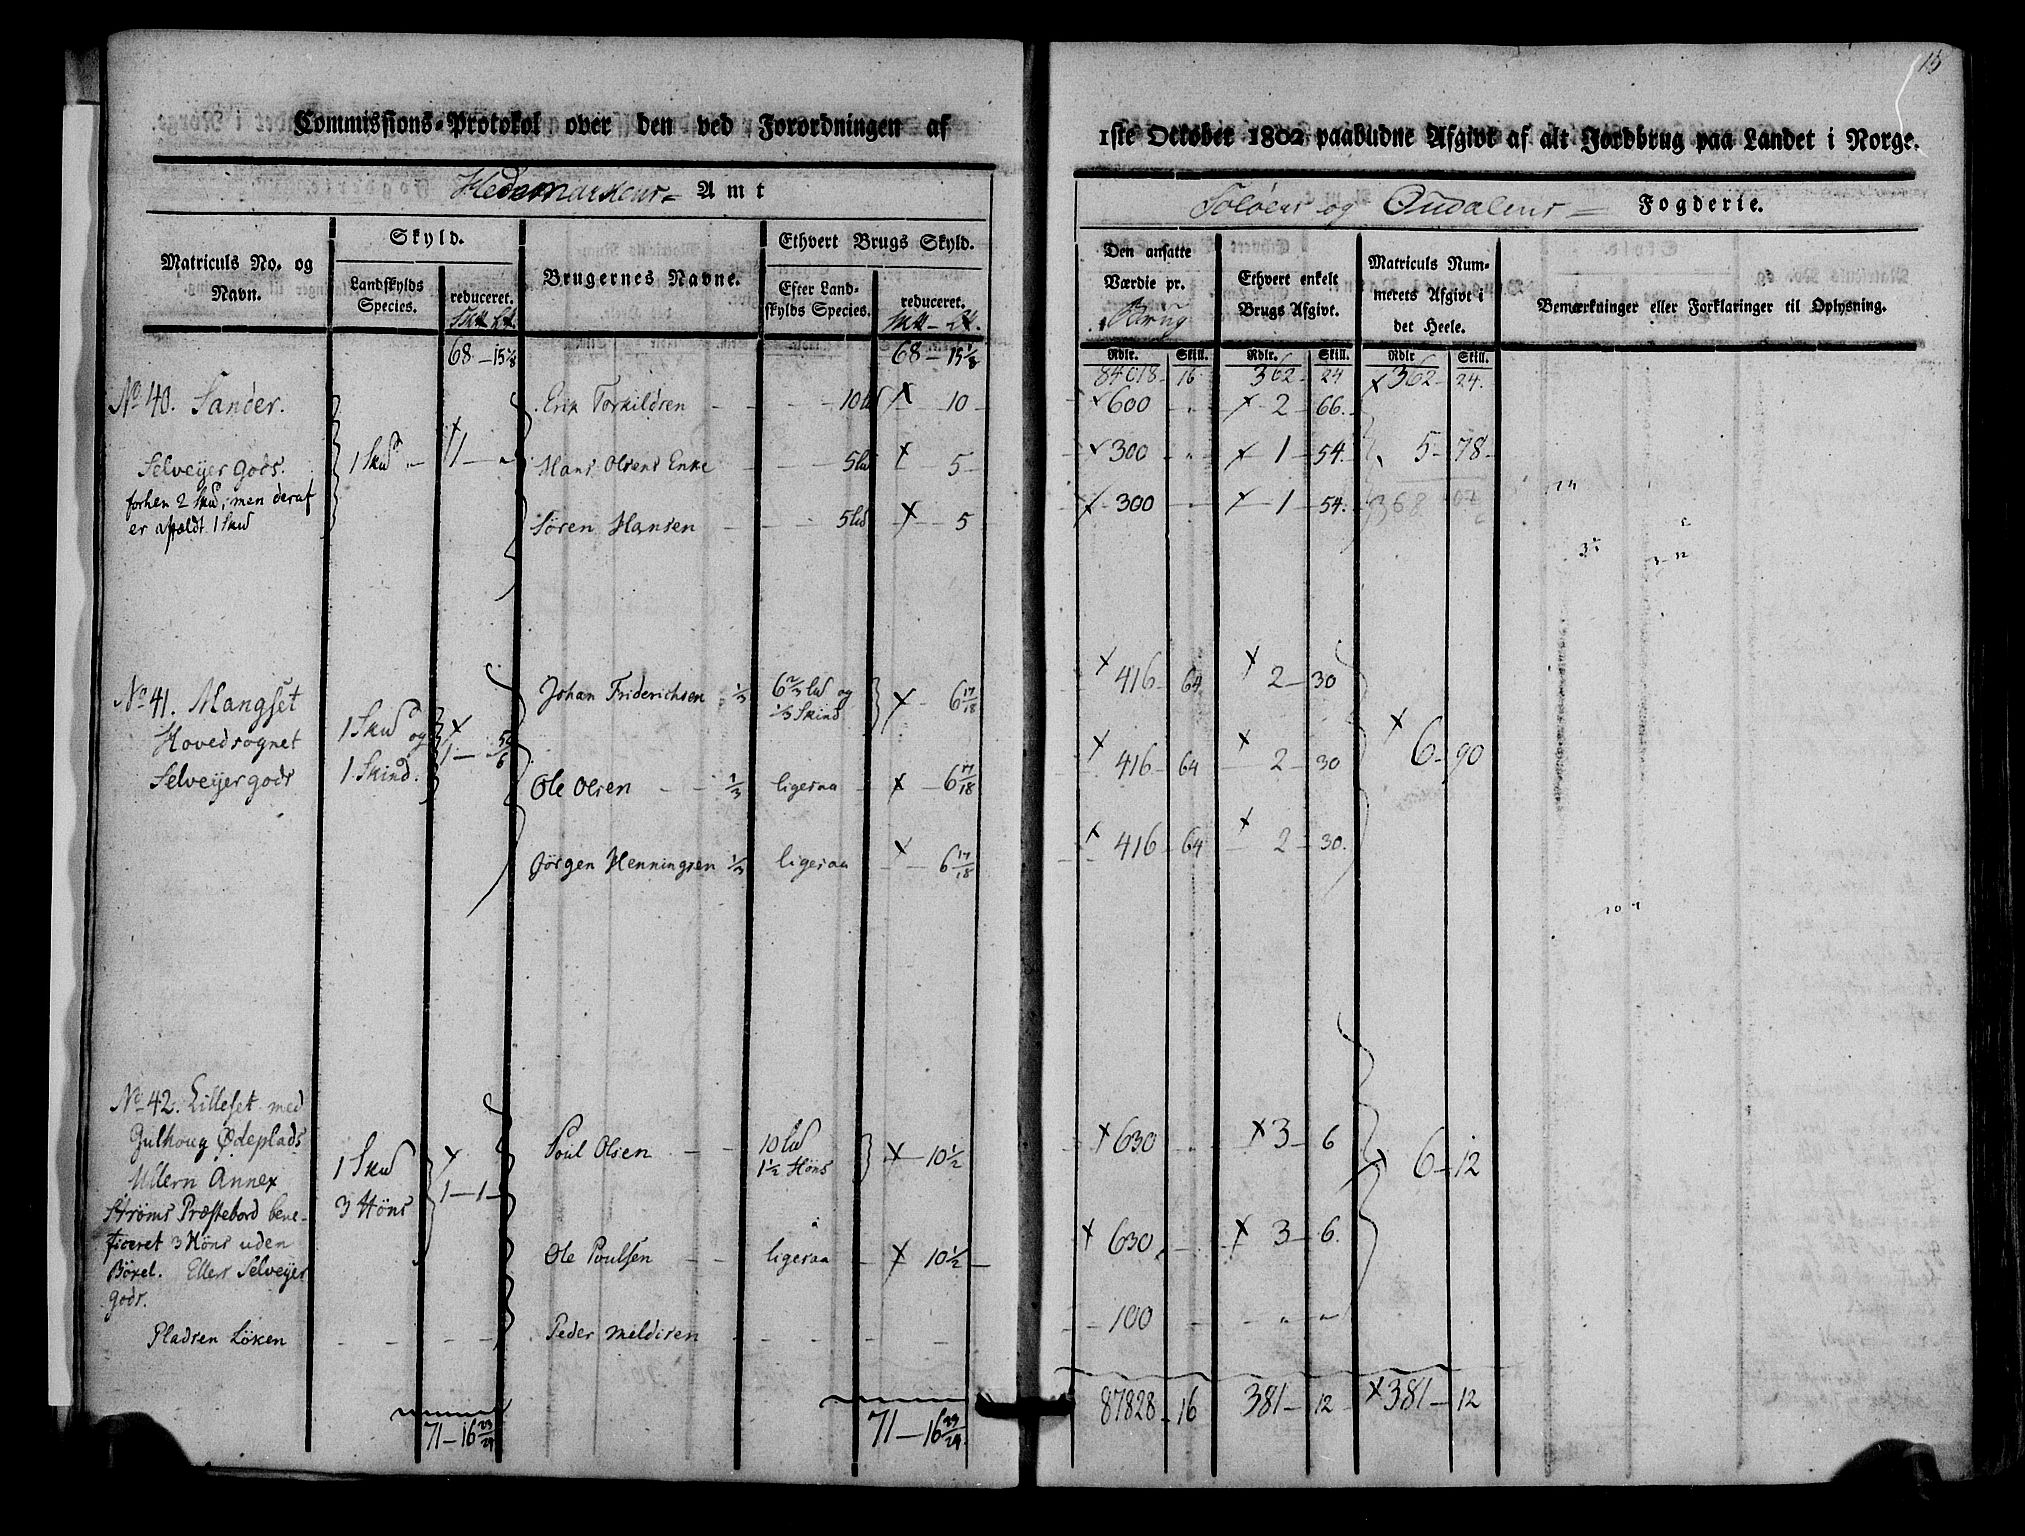 15
Commissions-Protokol over den ved Forordningen af
1ste October 1802 paabudne Afgivt af alt Jordbrug paa Landet i Norge.
Hedemarkens Amt
Soløens og Oudalens Fogderie.
Matriculs No. og Navn.
Skyld.
Landskylds Species.
reduceret.
Brugernes Navne.
Ethvert Brugs Skyld.
Efter Landskylds Species.
reduceret.
Den ansatte Værdie pr. Brug
Ethvert enkelt Brugs Afgivt.
Matriculs Nummerets Afgivt i det Heele.
Bemærkninger eller Forklaringer til Oplysning.
Rdlr. Skill. Rdlr. Skill. Rdlr Skill.
68 - 15 1/8 68 - 15 1/8 84618 - 16 362 - 24 x 362 - 24.
No 40. Sander. Erik Torkildsen - - 10 lud x - 10 - x 600 - x - 2 - 66.
Selveyer gods. 1 Skud - x 1 - Hans Olsens Enke - - 5 lud x 5 - x 300 x - 1 - 54. 5 - 78 -
forhen 2 Skud, men deraf
er afældt 1 Skud Søren Hansen - - 5 lud - x - 5 x - 300 - x - 1 - 54. 368
No 41. Mangset Johan Friderichsen 1/3 6 2/3 lud og 1/3 Skind x - 6 17/18 x 416 - 64 x 2 - 30
Hovedsognet 1 Skud og x 1 - 5/6 x 6 - 90
Selveyer gods 1 Skind. Ole Olsen - - 1/3 ligesaa - x - 6 17/18 x 416 - 64 x - 2 - 30
Jørgen Henningsen 1/3 ligesaa - x - 6 17/18 x 416 - 64 x - 2 - 30.
No 42. Lilleset med
Gulhoug Ødeplads Poul Olsen - - 10 lud 1 1/2 Höns x - 10 1/2 x 630 x 3 - 6 x 6 - 12
Ullern Annex 1 Skud x
Strøms Præstebord bene- 3 Höns 1 - 1 -
ficeret 3 Höns uden
Böxel. Ellers Selveyer Ole Poulsen - - ligesaa - x - 10 1/2 - x 630 - x - 3 - 6.
gods.
Pladsen Löken - - - - Peder Meldisen - - - - - 100 - " "
71 - 16 23/24 71 - 16 23/24 87828 - 16 381 - 12 - x 381 - 12